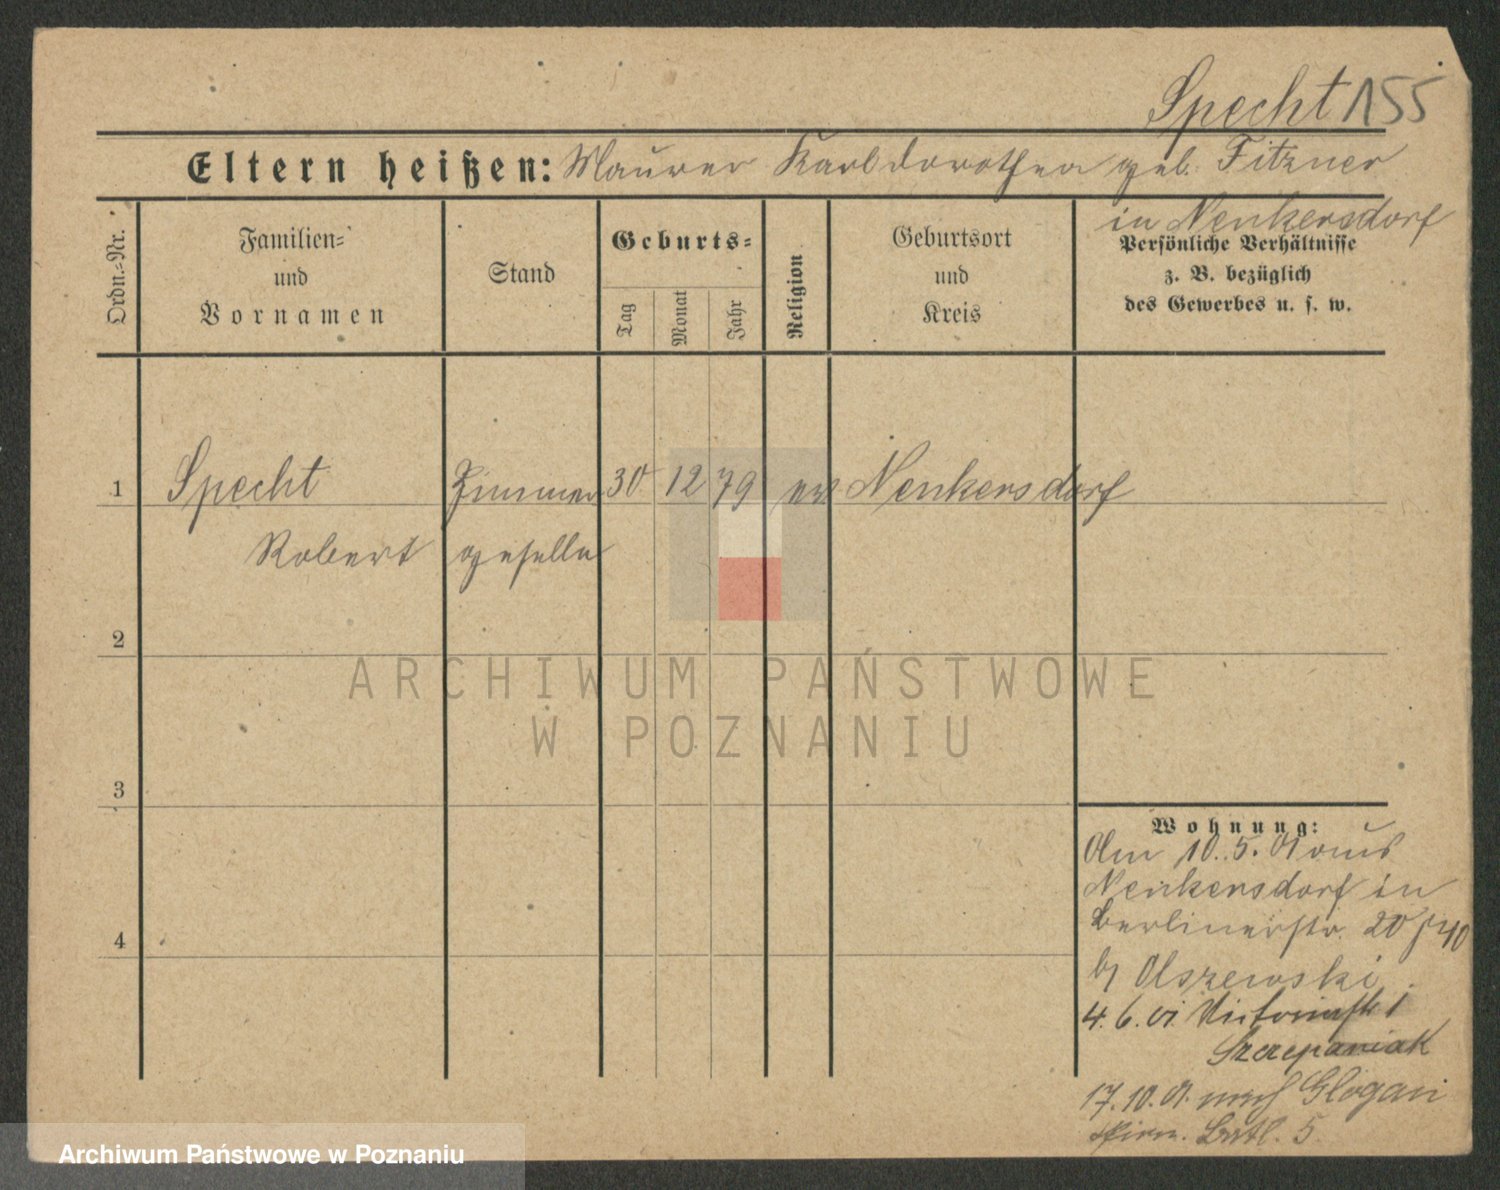 Specht 155
Eltern heißen: Maurer Karl dorothea geb. Fitzner
in Nenkersdorf
Ordn.-Nr.
Familien-
und
Vornamen
Stand
Geburts-
Tag
Monat
Jahr
Religion
Geburtsort
und
Kreis
Persönliche Verhältnisse
z. B. bezüglich
des Gewerbes u. s. w.
1 Specht Zimmer 30 12 79 ev Nenkersdorf
Robert geselle
2
3
4
Wohnung:
Am 10.5.01 aus
Nenkersdorf in
Berlinerstr. 20
b/ Olszewski
4.6.01 Victoriastr 1
Szczepaniak
17.10.01 nach Glogau
5
ARCHIWUM PAŃSTWOWE
W POZNANIU
Archiwum Państwowe w Poznaniu